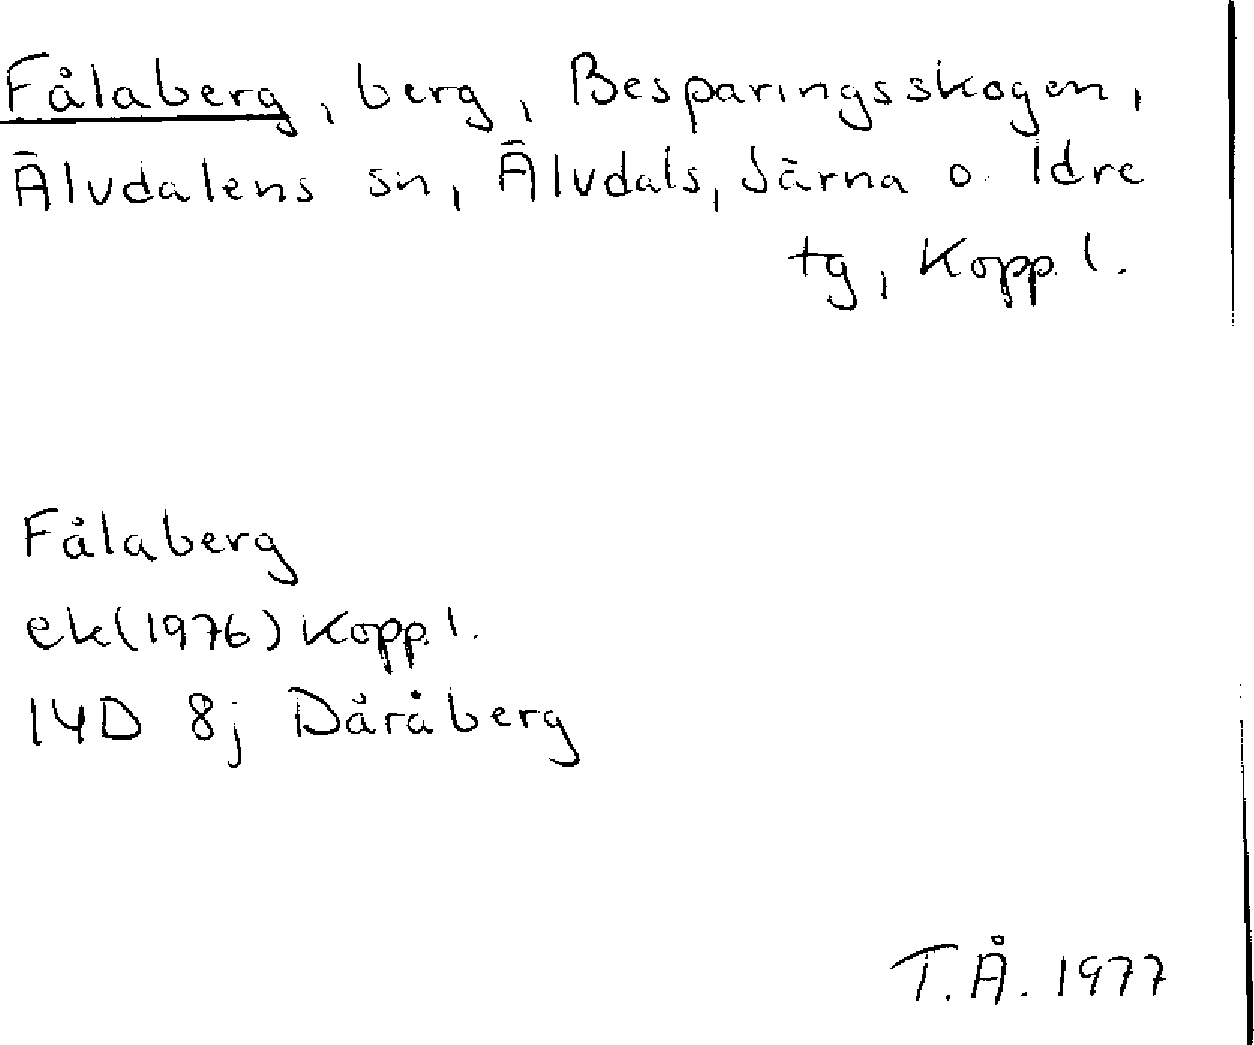 Fålaberg, berg, Besparingsskogen,
Älvdalens sn, Älvdals, Särna o. Idre
tg, Kopp. l.
Fålaberg
ek(1976) Kopp. l.
14D 8j Däråberg
T.Å. 1977